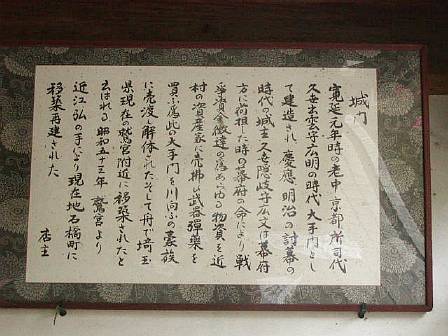 城門
寛延元年時の老中 京都所司代
久世出雲守広明の時代 大手門とし
て建造され、慶應、明治の討幕の
時代の城主久世隠岐守広文は幕府
方に荷担し時の幕府の命により戦
争資金徴達の為あらゆる物資を近
村の資産家に売拂い武器弾薬を
買ふ為此の大手門を川向ふの豪族
に売渡し解体されたそして舟で埼玉
県現在の鷲宮附近に移築されたと
云はれる 昭和五十三年 鷲宮より
近江弘の手により現在地石橋町に
移築再建された
店主